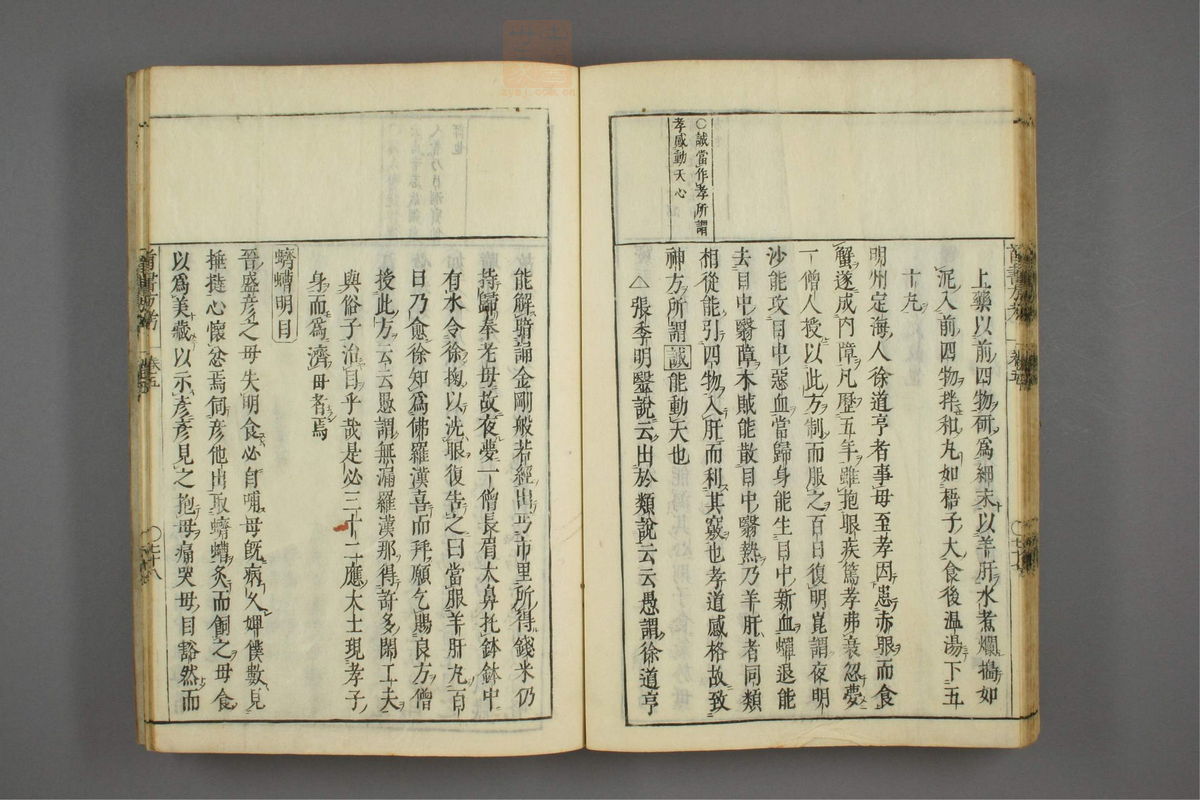 ○誠當作孝所謂
孝感動天心
上藥以前四物研爲細末以羊肝水煮爛搗如
泥入前四物拌和丸如梧子大食後温湯下五
十丸
明州定海人徐道亨者事母至孝因患赤眼而食
蟹遂成內障凡歷五年雖抱眼疾篤孝弗衰忽夢
一僧人授以此方制而服之百日復明崑謂夜明
沙能攻目中惡血當歸身能生目中新血蟬退能
去目中翳障木賊能散目中翳熱乃羊肝者同類
相從能引四物入肝而利其竅也孝道感格故致
神方所謂誠能動天也
△張季明醫說云出於類說云云愚謂徐道亨
能解暗誦金剛般若經出丐市里所得錢米仍
持歸奉老母故夜夢一僧長眉大鼻托鉢鉢中
有水令徐掬以洗眼復告之曰當服羊肝丸百
日乃愈徐知爲佛羅漢喜而拜願乞賜良方僧
授此方云云愚謂無漏羅漢那得許多閑工夫
與俗子治目乎哉是必三十二應大士現孝子
身而爲濟母者焉
蠐螬明目
晉盛彥之母失明食必自哺母旣病久婢僕數見
捶撻心懷忿焉伺彥他出取蠐螬炙而飼之母食
以爲美藏以示彥彥見之抱母痛哭母目豁然而
卷五
七十八